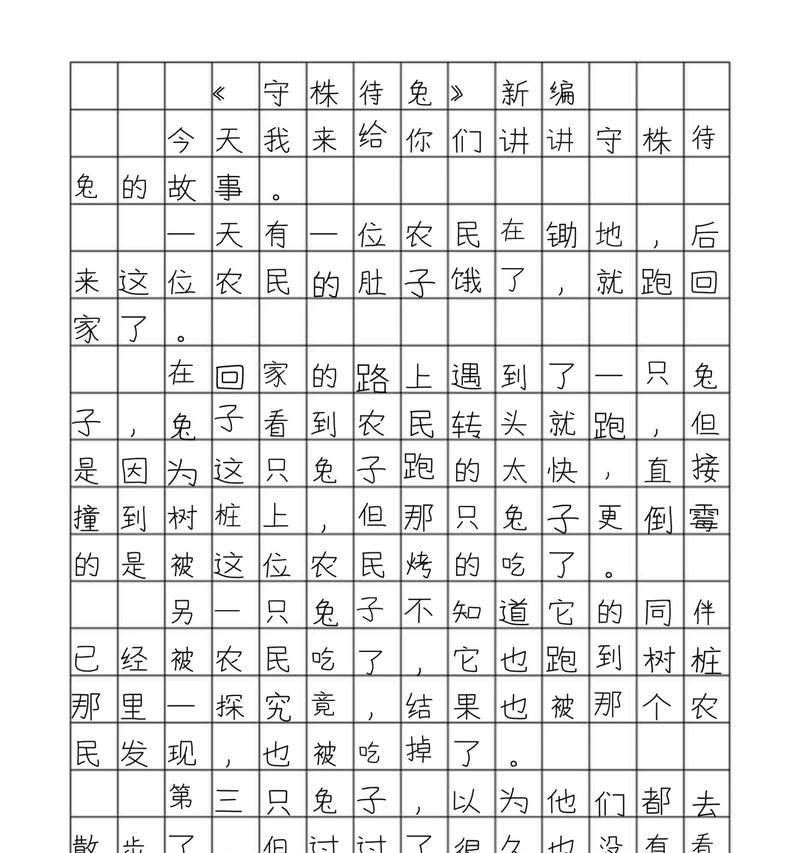 《守株待兔》新编
今天我来给你们讲讲守株待
兔的故事。
一天有一位农民在锄地，后
来这位农民的肚子饿了，就跑回
家了。
在回家的路上遇到了一只兔
子，兔子看到农民转头就跑，但
是因为这只兔子跑的太快，直接
撞到树桩上，但那只兔子更倒霉
的是被这位农民烤的吃了。
另一只兔子不知道它的同伴
已经被农民吃了，它也跑到树桩
那里一探究竟，结果也被那个农
民发现，也被吃掉了。
第三只兔子，以为他们都去
散步了，但过过了很久也没有看